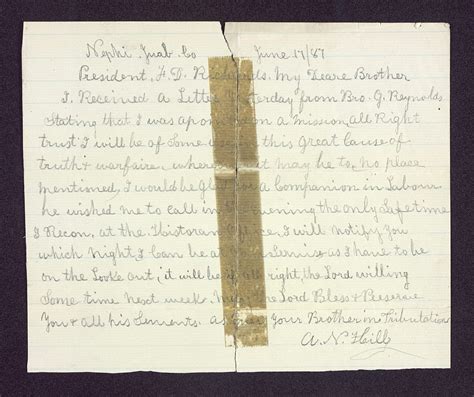 Nephi Juab Co June 17/87
President, F. D. Richards. My Deare Brother
I. Received a Letter Yesterday from Bro. G. Reynolds
Stating that I was apointed on a Mission, all Right
trust I will be of Some use in this Great Cause of
truth & warfaire, where it may be to, no place
mentioned, I would be Glad for a Companion in Labour
he wished me to call in the evening the only Safe time
I Recon, at the Historian Office, I will notify You
which Night I can be at as I have to be
on the Looke out, it will be all right, the Lord willing
Some time next week. May the Lord Bless & Preserve
You & all his Servents. as Ever Your Brother in Tribulation
A. N. Hill